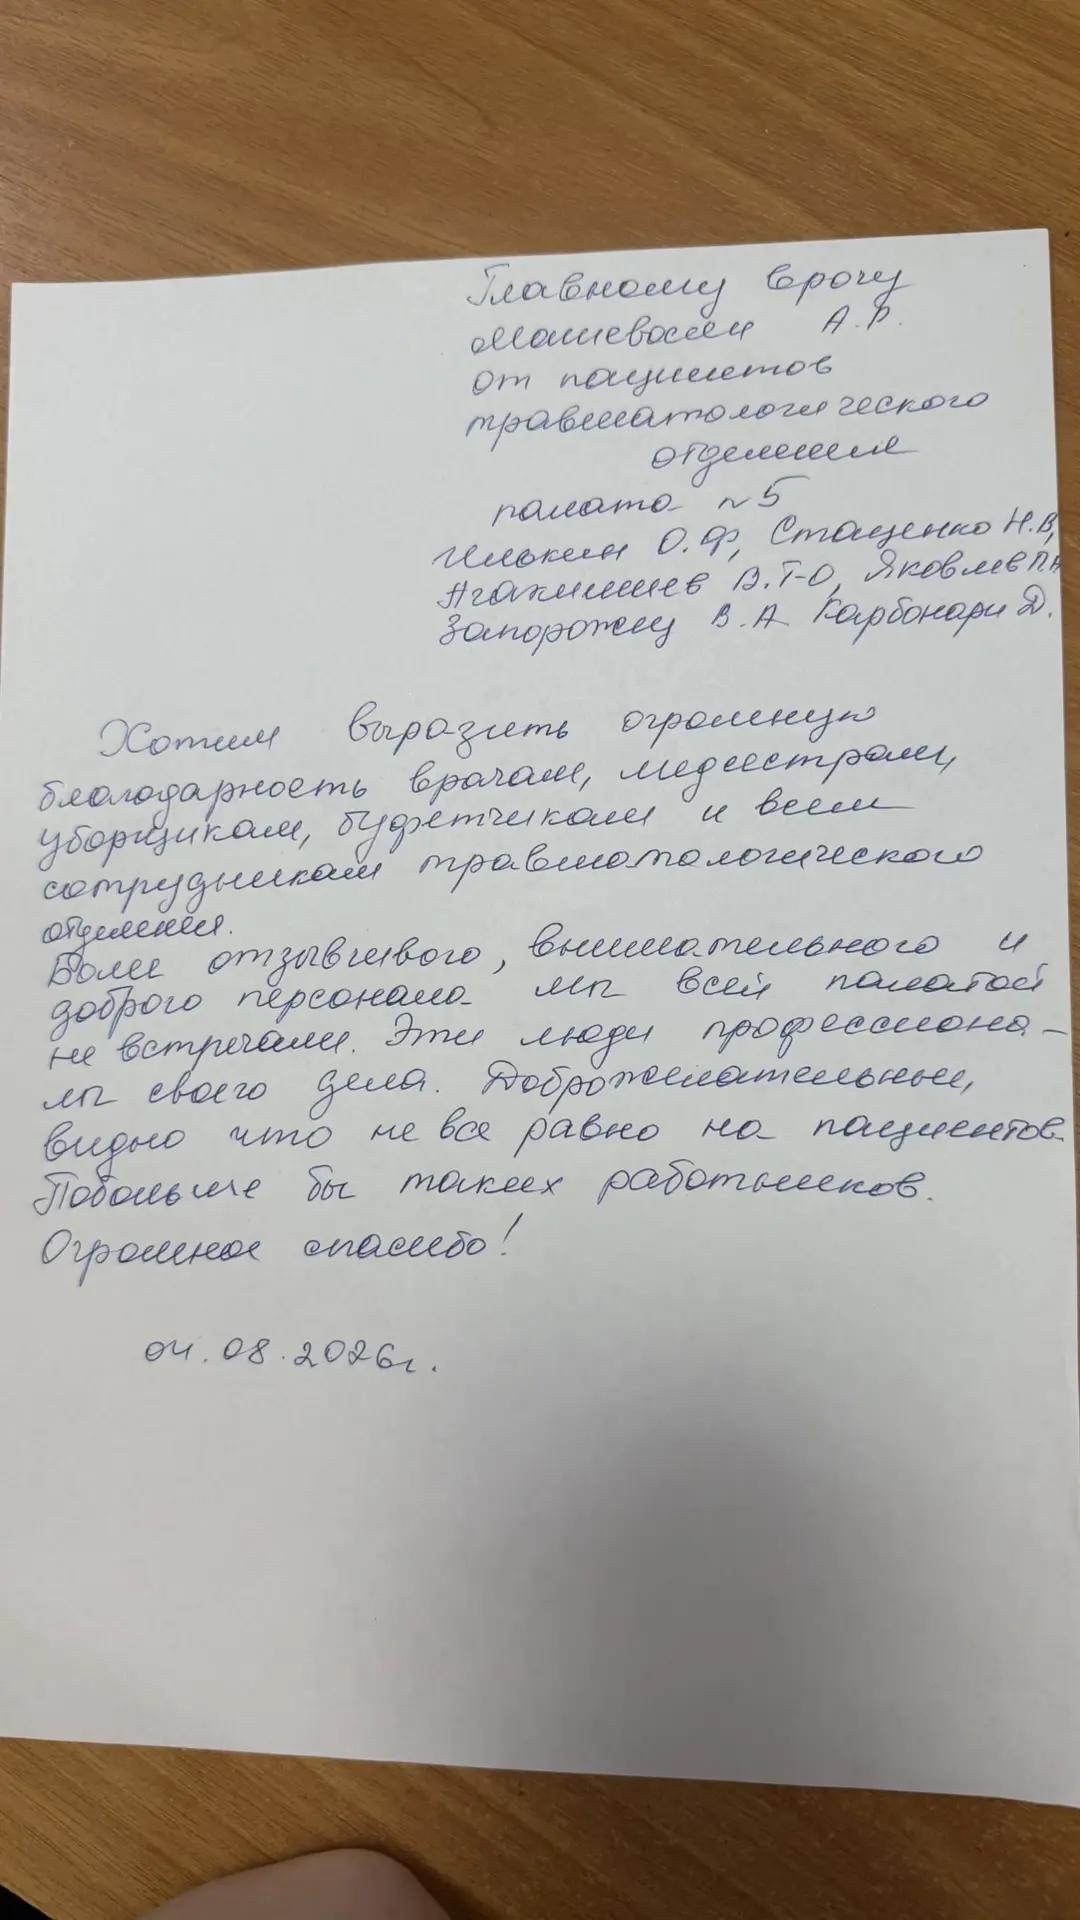 Главному врачу
Матевосян А.Р.
от пациентов
травматологического
отделения
палата №5
Илькин О.Ф, Стаценко Н.В,
Агахишиев В.Т-О, Яковлев П.А
Запорожец В.А Карбонари Д.
Хотим выразить огромную
благодарность врачам, медсестрам,
уборщикам, буфетчикам и всем
сотрудникам травматологического
отделения.
Более отзывчивого, внимательного и
доброго персонала мы всей палатой
не встречали. Эти люди профессиона-
лы своего дела. Доброжелательные,
видно что не все равно на пациентов
Побольше бы таких работников.
Огромное спасибо!
04.08.2026г.